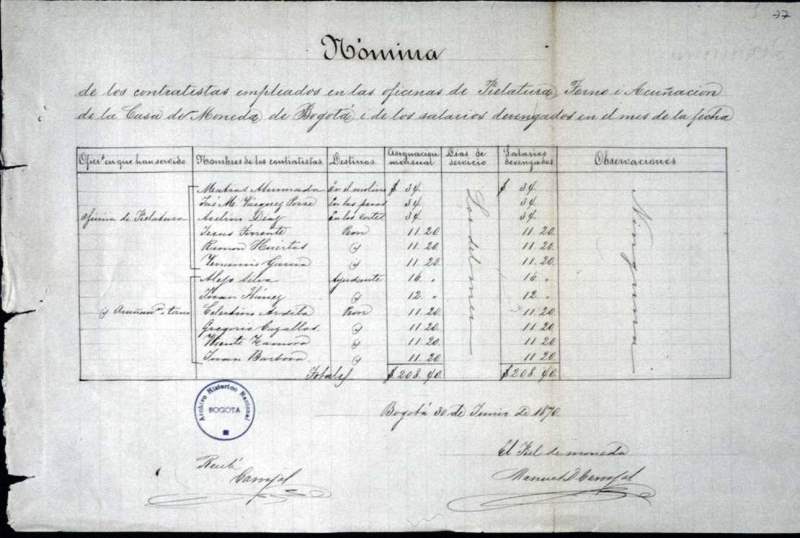 77
Nómina
de los contratistas empleados en las oficinas de Fielatura, Torno i Acuñacion
de la Casa de Moneda de Bogotá i de los salarios devengados en el mes de la fecha
Ofic.ª en que han servido Nombres de los contratistas Destinos Asignacion mensual Dias de servicio Salarios devengados Observaciones
Matias Ahumada En el molino $ 34. $ 34.
José M. Vasquez Ponse En las pesas 34. 34.
oficina de Fielatura Avelino Diaz En los cortes 34. 34.
Jesus Torrente Peon 11.20 11.20
Ramon Huertas " 11.20 11.20
Garcia " 11.20 11.20
Alejo Silva Ayudante 16 " 16 "
Ibáñez " 12 " 12 "
torno Celestino Ardila Peon 11.20 11.20
Gregorio Cuyallos " 11.20 11.20
Vicente Zamora " 11.20 11.20
Juan Barbosa " 11.20 11.20
Los del mes
Ninguna
Totales $ 208.40 $ 208.40
Archivo Historico Nacional
BOGOTA
Bogotá 30 de Junio de 1870
El Fiel de moneda
Recibí
Carvajal
Manuel D. Carvajal